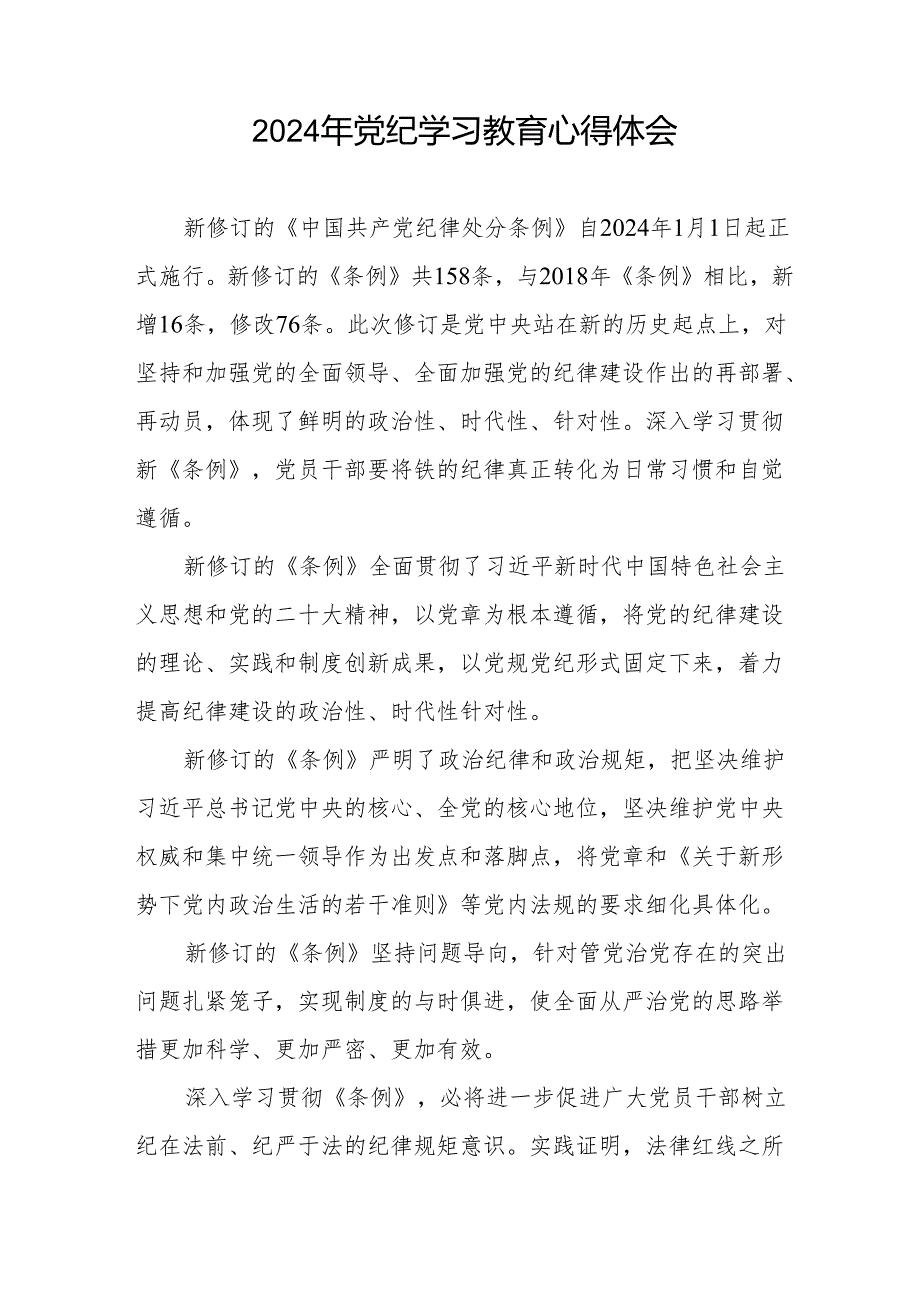 2024年党纪学习教育心得体会
新修订的《中国共产党纪律处分条例》自2024年1月1日起正
式施行。新修订的《条例》共158条，与2018年《条例》相比，新
增16条，修改76条。此次修订是党中央站在新的历史起点上，对
坚持和加强党的全面领导、全面加强党的纪律建设作出的再部署、
再动员，体现了鲜明的政治性、时代性、针对性。深入学习贯彻
新《条例》，党员干部要将铁的纪律真正转化为日常习惯和自觉
遵循。
新修订的《条例》全面贯彻了习近平新时代中国特色社会主
义思想和党的二十大精神，以党章为根本遵循，将党的纪律建设
的理论、实践和制度创新成果，以党规党纪形式固定下来，着力
提高纪律建设的政治性、时代性针对性。
新修订的《条例》严明了政治纪律和政治规矩，把坚决维护
习近平总书记党中央的核心、全党的核心地位，坚决维护党中央
权威和集中统一领导作为出发点和落脚点，将党章和《关于新形
势下党内政治生活的若干准则》等党内法规的要求细化具体化。
新修订的《条例》坚持问题导向，针对管党治党存在的突出
问题扎紧笼子，实现制度的与时俱进，使全面从严治党的思路举
措更加科学、更加严密、更加有效。
深入学习贯彻《条例》，必将进一步促进广大党员干部树立
纪在法前、纪严于法的纪律规矩意识。实践证明，法律红线之所